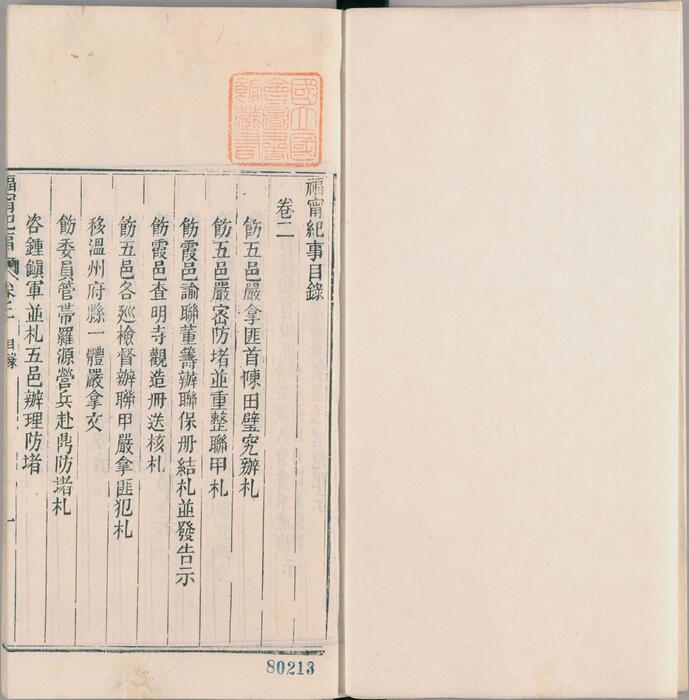 國立國
會圖書
館藏書
福甯紀事目錄
卷二
飭五邑嚴拿匪首陳田璧究辦札
飭五邑嚴密防堵並重整聯甲札
飭霞邑諭聯董籌辦聯保册結札並發告示
飭霞邑查明寺觀造册送核札
飭五邑各廵檢督辦聯甲嚴拿匪犯札
移溫州府縣一體嚴拿文
飭委員管帶羅源營兵赴鼎防堵札
咨鍾鎭軍並札五邑辦理防堵
福甯紀事 卷二 目錄 一
80213